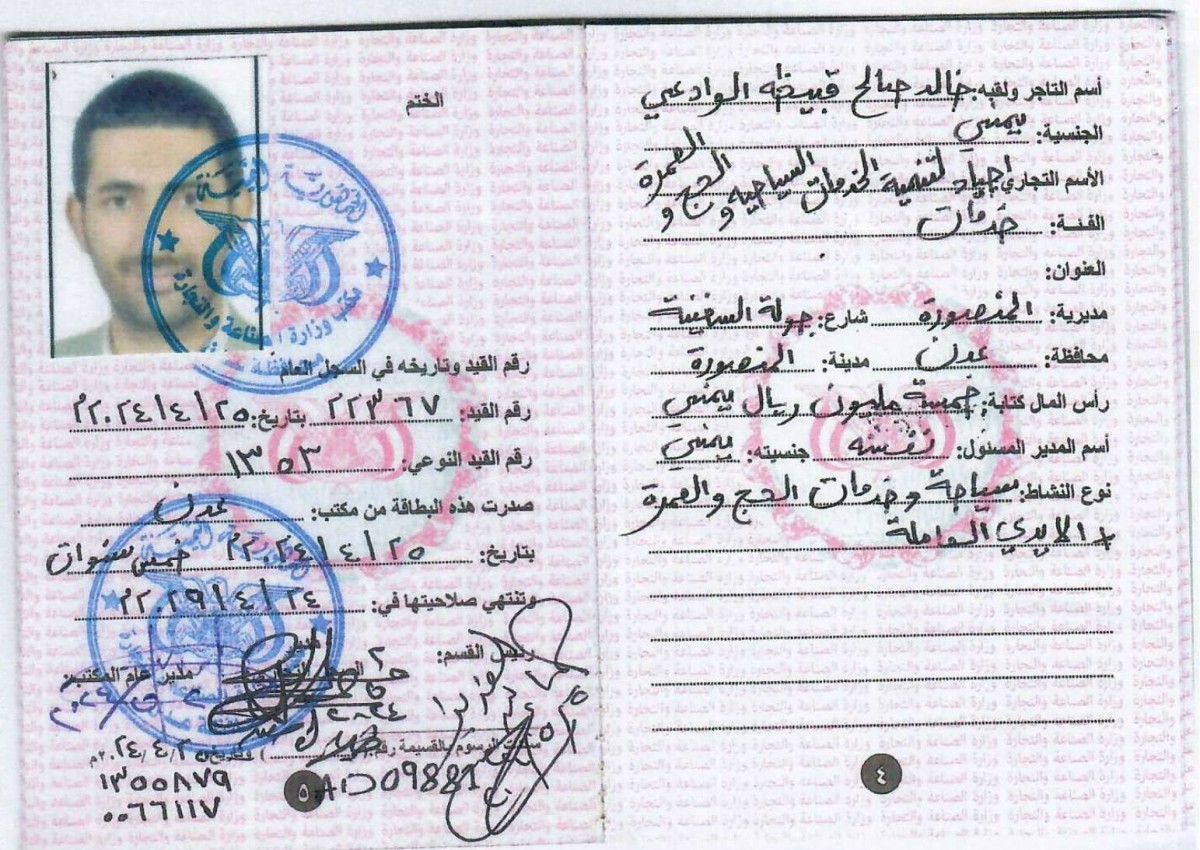 أسم التاجر ولقبه: خالد صالح قبيضه الوادعي
الجنسية: يمني
الأسم التجاري: اجياد لتنمية الخدمات السياحيه و الحج و العمرة
الفئة: خدمات
العنوان:
مديرية: المنصورة شارع: جولة السفينة
محافظة: عدن مدينة: المنصورة
رأس المال كتابة: خمسة مليون ريال يمني
أسم المدير المسئول: نفسه جنسيته: يمني
نوع النشاط: سياحة وخدمات الحج والعمرة
+ الايدي العاملة
٤
الختم
الجمهورية اليمنية
مكتب وزارة الصناعة والتجارة
رقم القيد وتاريخه في السجل العام
رقم القيد: ٢٢٣٦٧ بتاريخ: ٢٠٢٤/٤/٢٥م
رقم القيد النوعي: ١٣٥٣
صدرت هذه البطاقة من مكتب: عدن
بتاريخ: ٢٠٢٤/٤/٢٥م خمس سنوات
وتنتهي صلاحيتها في: ٢٠٢٩/٤/٢٤م
رئيس القسم:
مدير عام المكتب:
الرسوم بالقسيمة رقم
٢٠٢٤/٤/٢٥م
١٣٥٥٨٧٩
٠٠٦٦١١٧
AD09881
٥